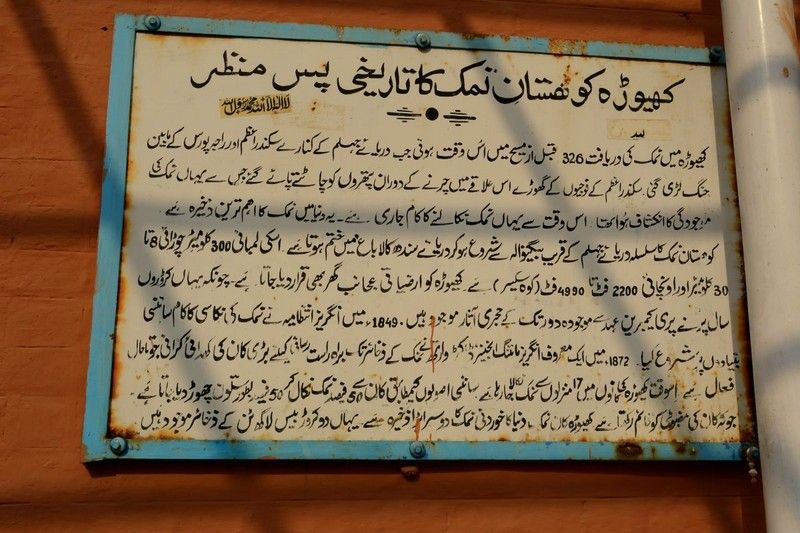 کھیوڑہ کوہستان نمک کا تاریخی پس منظر
لا الہ الا اللہ محمد رسول اللہ
کھیوڑہ میں نمک کی دریافت 326 قبل از مسیح میں اس وقت ہوئی جب دریائے جہلم کے کنارے سکندر اعظم اور راجہ پورس کے مابین
جنگ لڑی گئی۔ سکندر اعظم کے فوجیوں کے گھوڑے اس علاقے میں چرنے کے دوران پتھروں کو چاٹتے پائے گئے جس سے یہاں نمک کی
موجودگی کا انکشاف ہوا۔ اس وقت سے یہاں نمک نکالنے کا کام جاری ہے۔ یہ دنیا میں نمک کا اہم ترین ذخیرہ ہے
کوہستان نمک کا سلسلہ دریائے جہلم کے قریب بیگنوالہ سے شروع ہو کر دریائے سندھ کالا باغ میں ختم ہوتا ہے۔ اسکی لمبائی 300 کلومیٹر چوڑائی 8 تا
30 کلومیٹر اور اونچائی 2200 فٹ تا 4990 فٹ (کوہ سکیسر) ہے۔ کھیوڑہ کو ارضیاتی عجائب گھر بھی قرار دیا جاتا ہے۔ چونکہ یہاں کروڑوں
سال پرانے پری کیمبرین عہد سے موجودہ دور تک کے حجری آثار موجود ہیں۔ 1849ء میں انگریز انتظامیہ نے نمک کی نکاسی کا کام سائنسی
بنیادوں پر شروع کیا۔ 1872ء میں ایک معروف انگریز مائننگ انجینئر نے نمک کے ذخائر تک براہ راست رسائی کیلئے بڑی کان کی کھدائی کرائی جو تاحال
فعال ہے۔ اسوقت کھیوڑہ کی کانوں میں 17 منزلوں سے نمک نکالا جا رہا ہے۔ سائنسی اصولوں کے مطابق کان سے 50 فیصد نمک نکال کر 50 فیصد بطور ستون چھوڑ دیا جاتا ہے۔
جو کہ کان کی مضبوطی کو قائم رکھتا ہے۔ کھیوڑہ کان نمک دنیا کا خوردنی نمک کا دوسرا بڑا ذخیرہ ہے۔ یہاں دو کروڑ بیس لاکھ ٹن کے ذخائر موجود ہیں۔